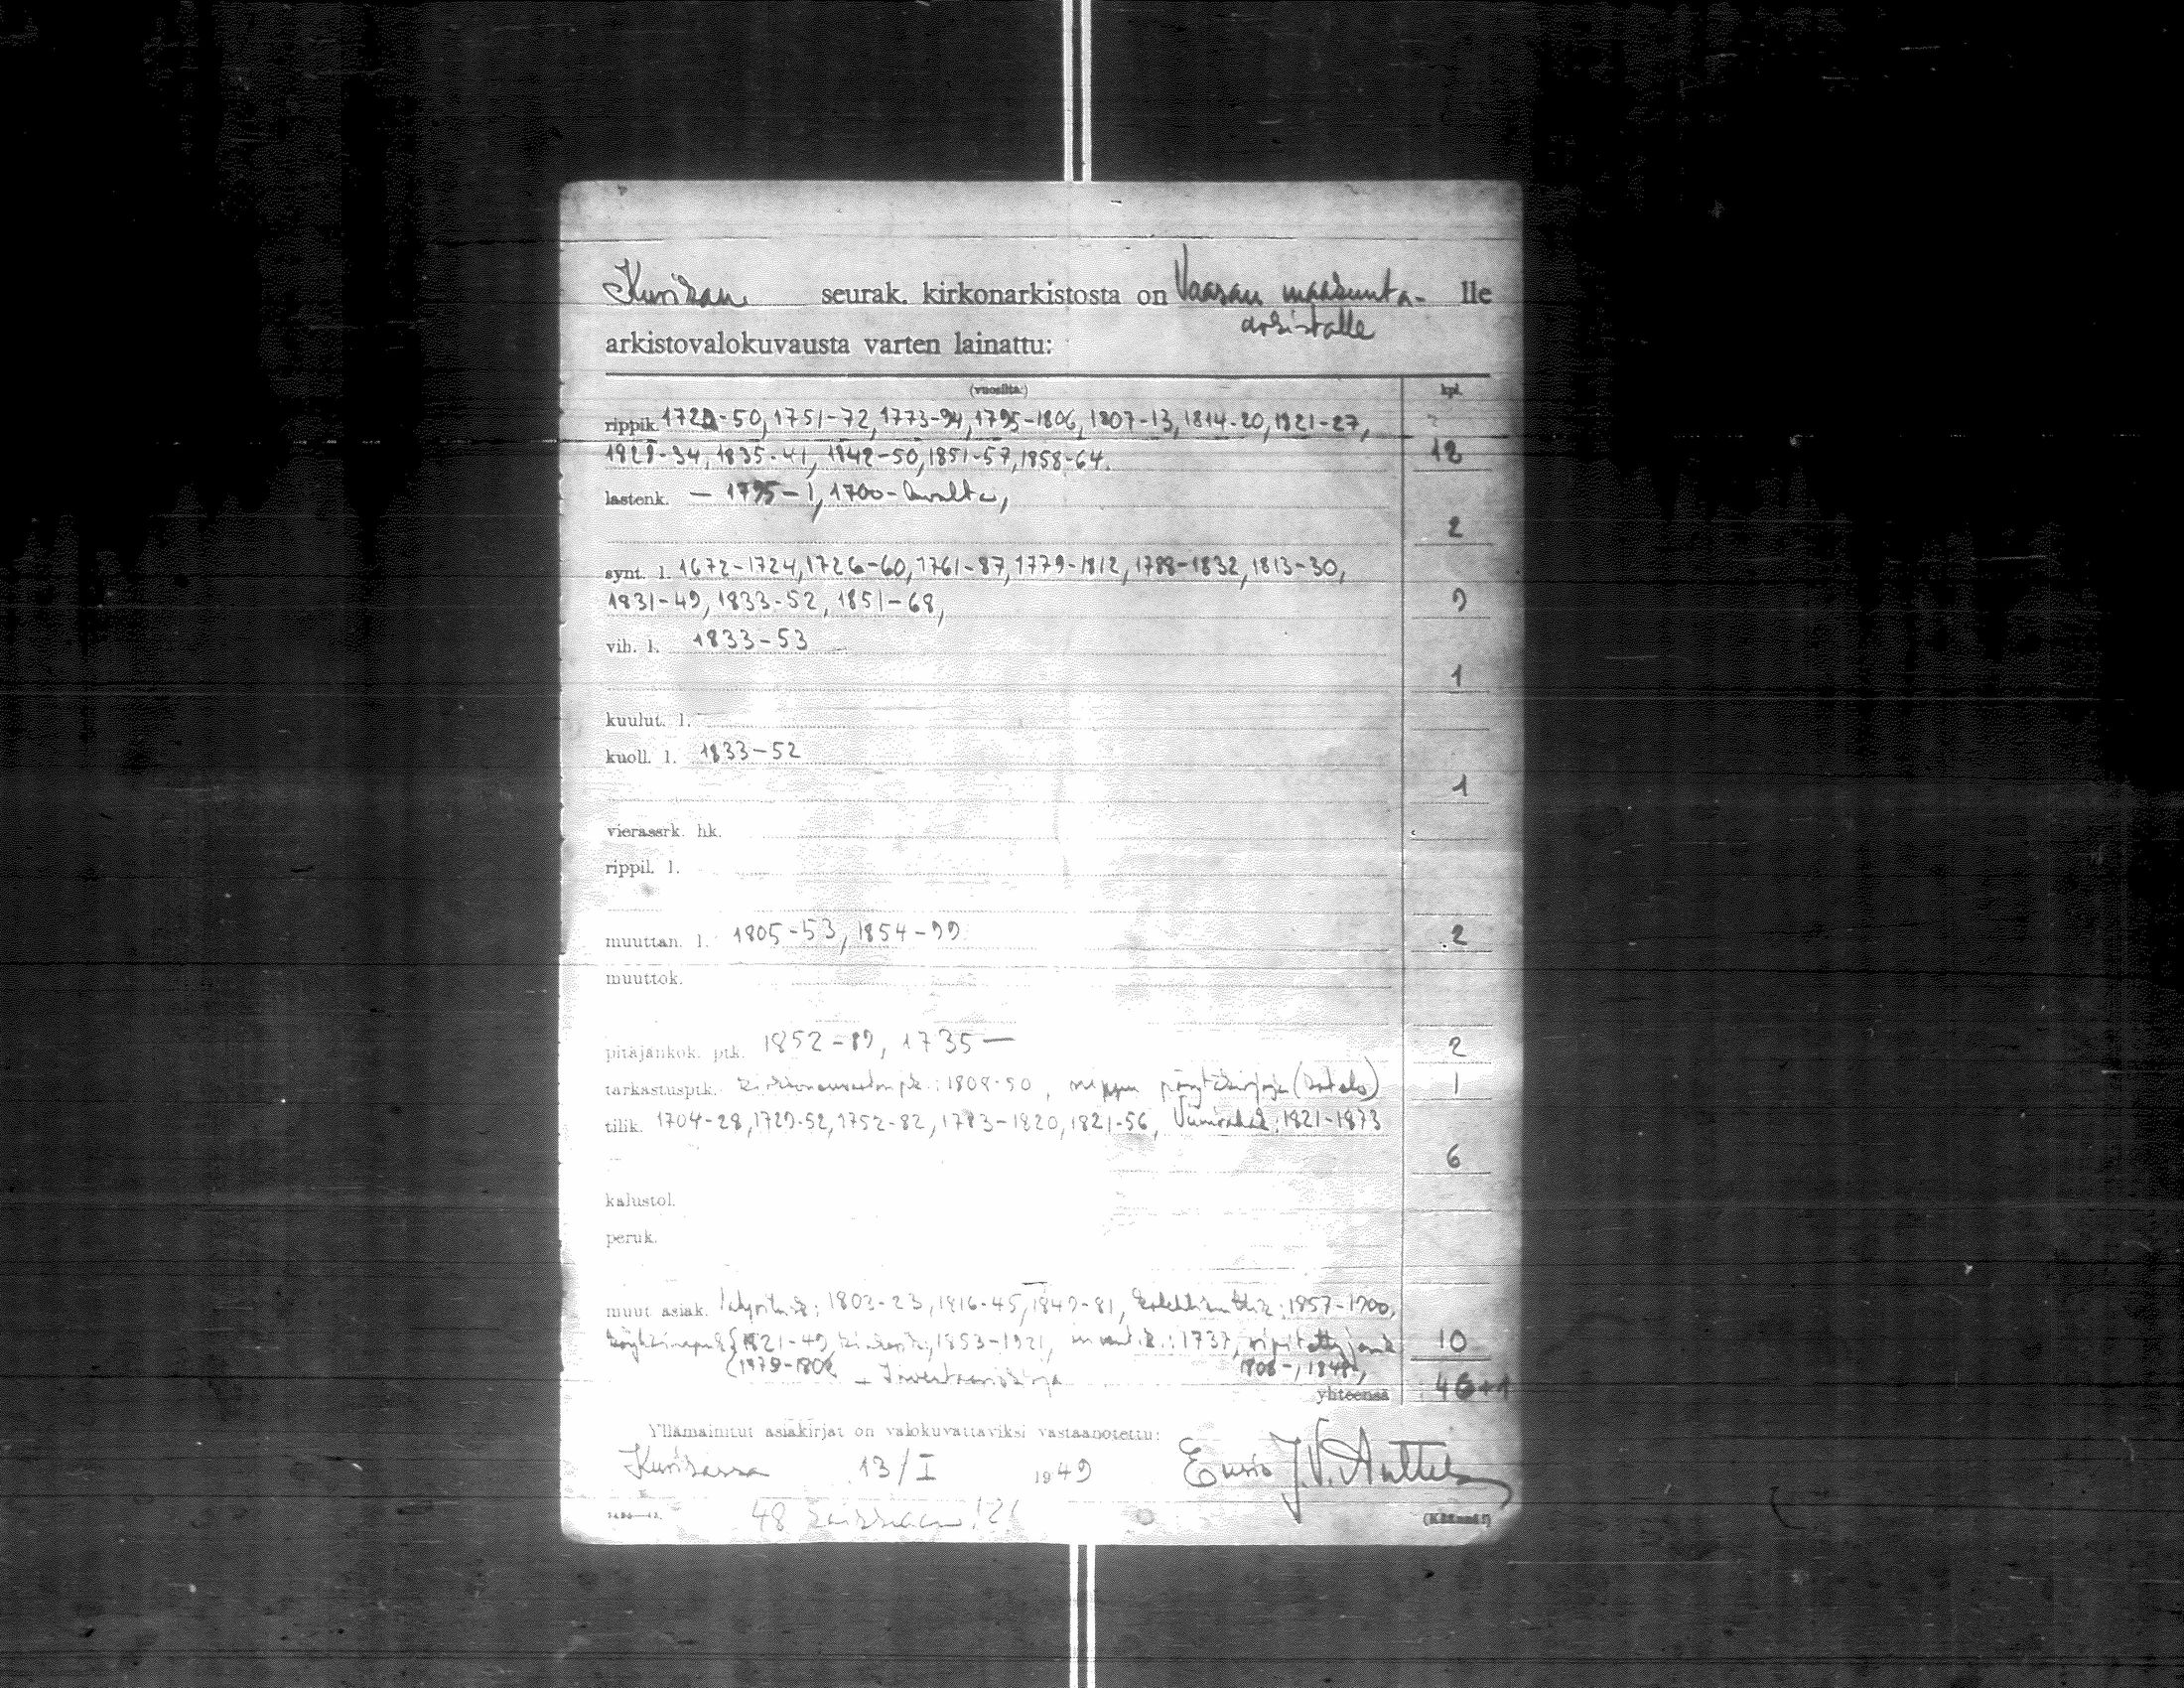 Kurikan seurak. kirkonarkistosta on Vaasan maakunta- lle
arkistolle
arkistovalokuvausta varten lainattu:
(vuosilta:) kpl.
rippik. 1728-50, 1751-72, 1773-94, 1795-1806, 1807-13, 1814-20, 1821-27,
1828-34, 1835-41, 1842-50, 1851-57, 1858-64. 12
lastenk. — 1795-1, 1700-luvulta,
2
synt. l. 1672-1724, 1726-60, 1761-87, 1779-1812, 1788-1832, 1813-30,
1831-49, 1833-52, 1851-68, 9
vih. l. 1833-53
1
kuulut. l.
kuoll. l. 1833-52
1
vierassrk. hk.
rippil. l.
muuttan. l. 1805-53, 1854-99 2
muuttok.
pitäjänkok. ptk. 1852-89, 1735— 2
tarkastusptk. 1808-50, nippu pöytäkirjoja 1
tilik. 1704-28, 1729-52, 1752-82, 1783-1820, 1821-56, 1821-1873
6
kalustol.
peruk.
muut asiak. 1803-23, 1816-45, 1849-81, 1857-1900,
1821-49, 1853-1921, 1737, 10
Inventaariokirja 1808-,
yhteensä 46+1
Yllämainitut asiakirjat on valokuvattaviksi vastaanotettu:
Kurikassa 13/I 1949 J.V. Anttila
48 kaikkiaan!
(Käännä!)